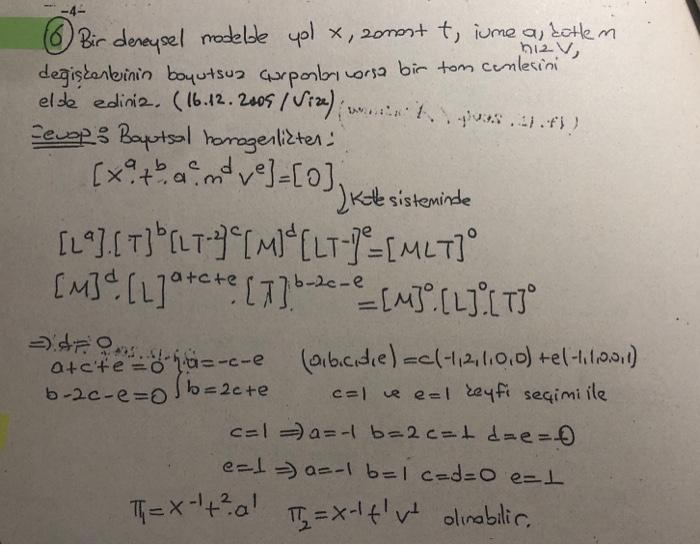 -4-
⑥ Bir deneysel modelde yol x, zaman t, ivme a, kütle m
hız V,
değişkenlerinin boyutsuz çarpanları varsa bir tam cümlesini
elde ediniz. (16.12.2005/Vize)
Cevap: Boyutsal homogenlikten:
[x^a.t^b.a^c.m^d v^e]=[0]
Kütle sisteminde
[L^a].[T]^b[LT^-2]^c[M]^d[LT^-1]^e=[MLT]^0
[M]^d.[L]^a+c+e.[T]^b-2c-e=[M]^0.[L]^0[T]^0
⇒ d=0
a+c+e=0 } a=-c-e (a,b,c,d,e)=c(-1,2,1,0,0)+e(-1,1,0,0,1)
b-2c-e=0 } b=2c+e c=1 ve e=1 keyfi seçimi ile
c=1 ⇒ a=-1 b=2 c=1 d=e=0
e=1 ⇒ a=-1 b=1 c=d=0 e=1
π₁=x^-1t^2.a^1 π₂=x^-1t^1v^1 alınabilir.